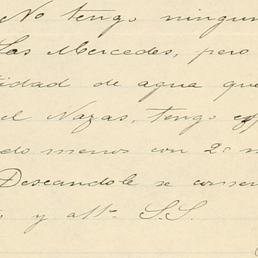 No tengo ningun
Las Mercedes, pero
idad de agua que
el Nazas, tengo esp
do menos con 2.
Deseandole se conser
y atto. S.S.